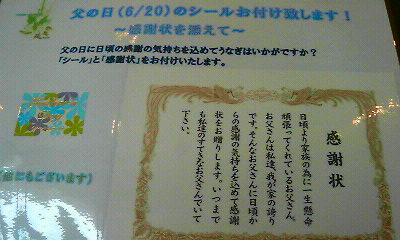 父の日(6/20)のシールお付け致します！
～感謝状を添えて～
父の日に日頃の感謝の気持ちを込めてうなぎはいかがですか？
「シール」と「感謝状」をお付けいたします。
感謝状
日頃より家族の為に一生懸命
頑張ってくれているお父さん。
お父さんは私達、我が家の誇り
です。そんなお父さんに日頃か
らの感謝の気持ちを込めて感謝
状をお贈りします。いつまで
も私達のすてきなお父さんでいて
下さい。
にもございます)